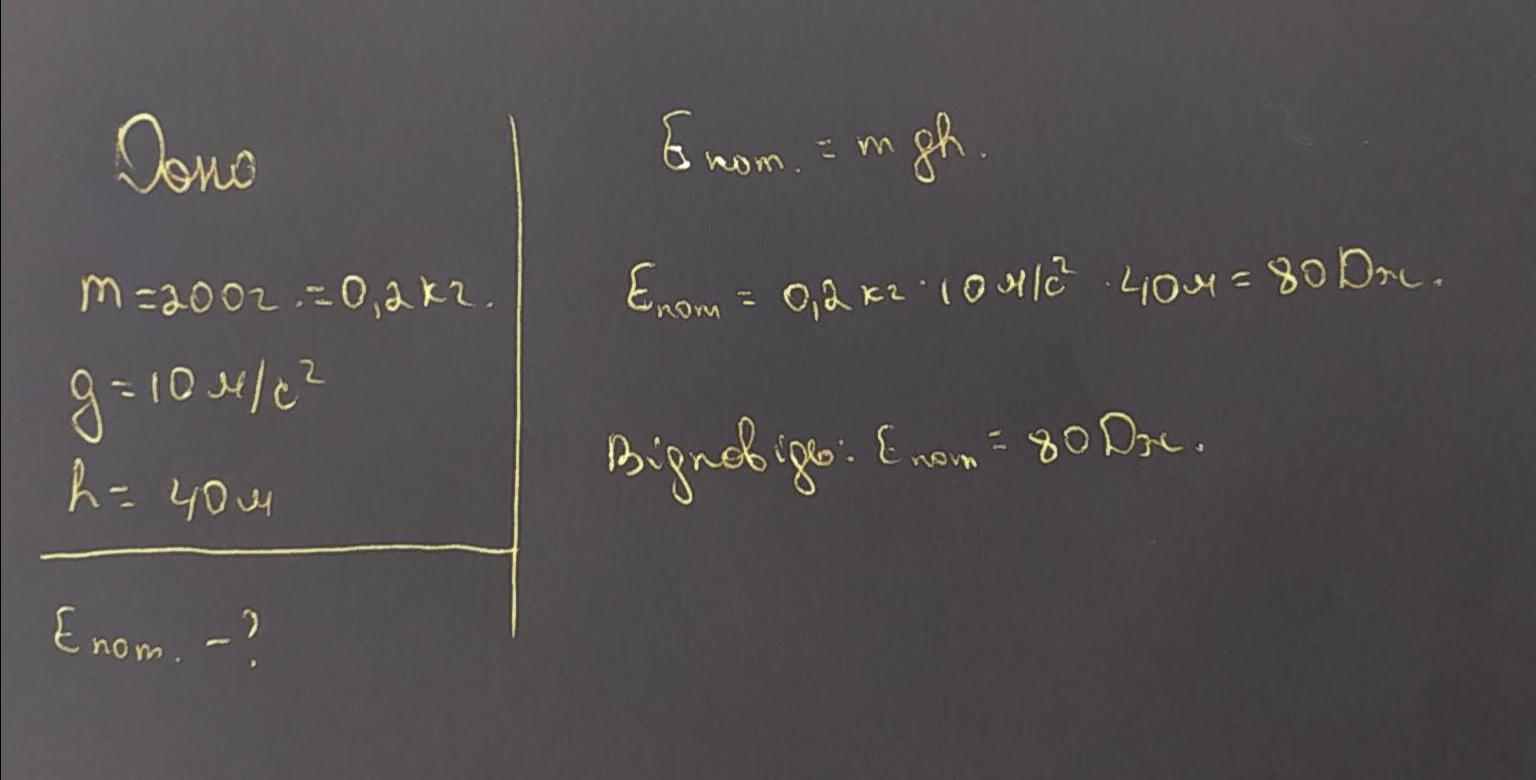 Дано
m=200г.=0,2кг.
g=10м/с²
h=40м
Eпот. -?
Eпот.=mgh.
Eпот=0,2кг·10м/с²·40м=80Дж.
Відповідь: Eпот=80Дж.